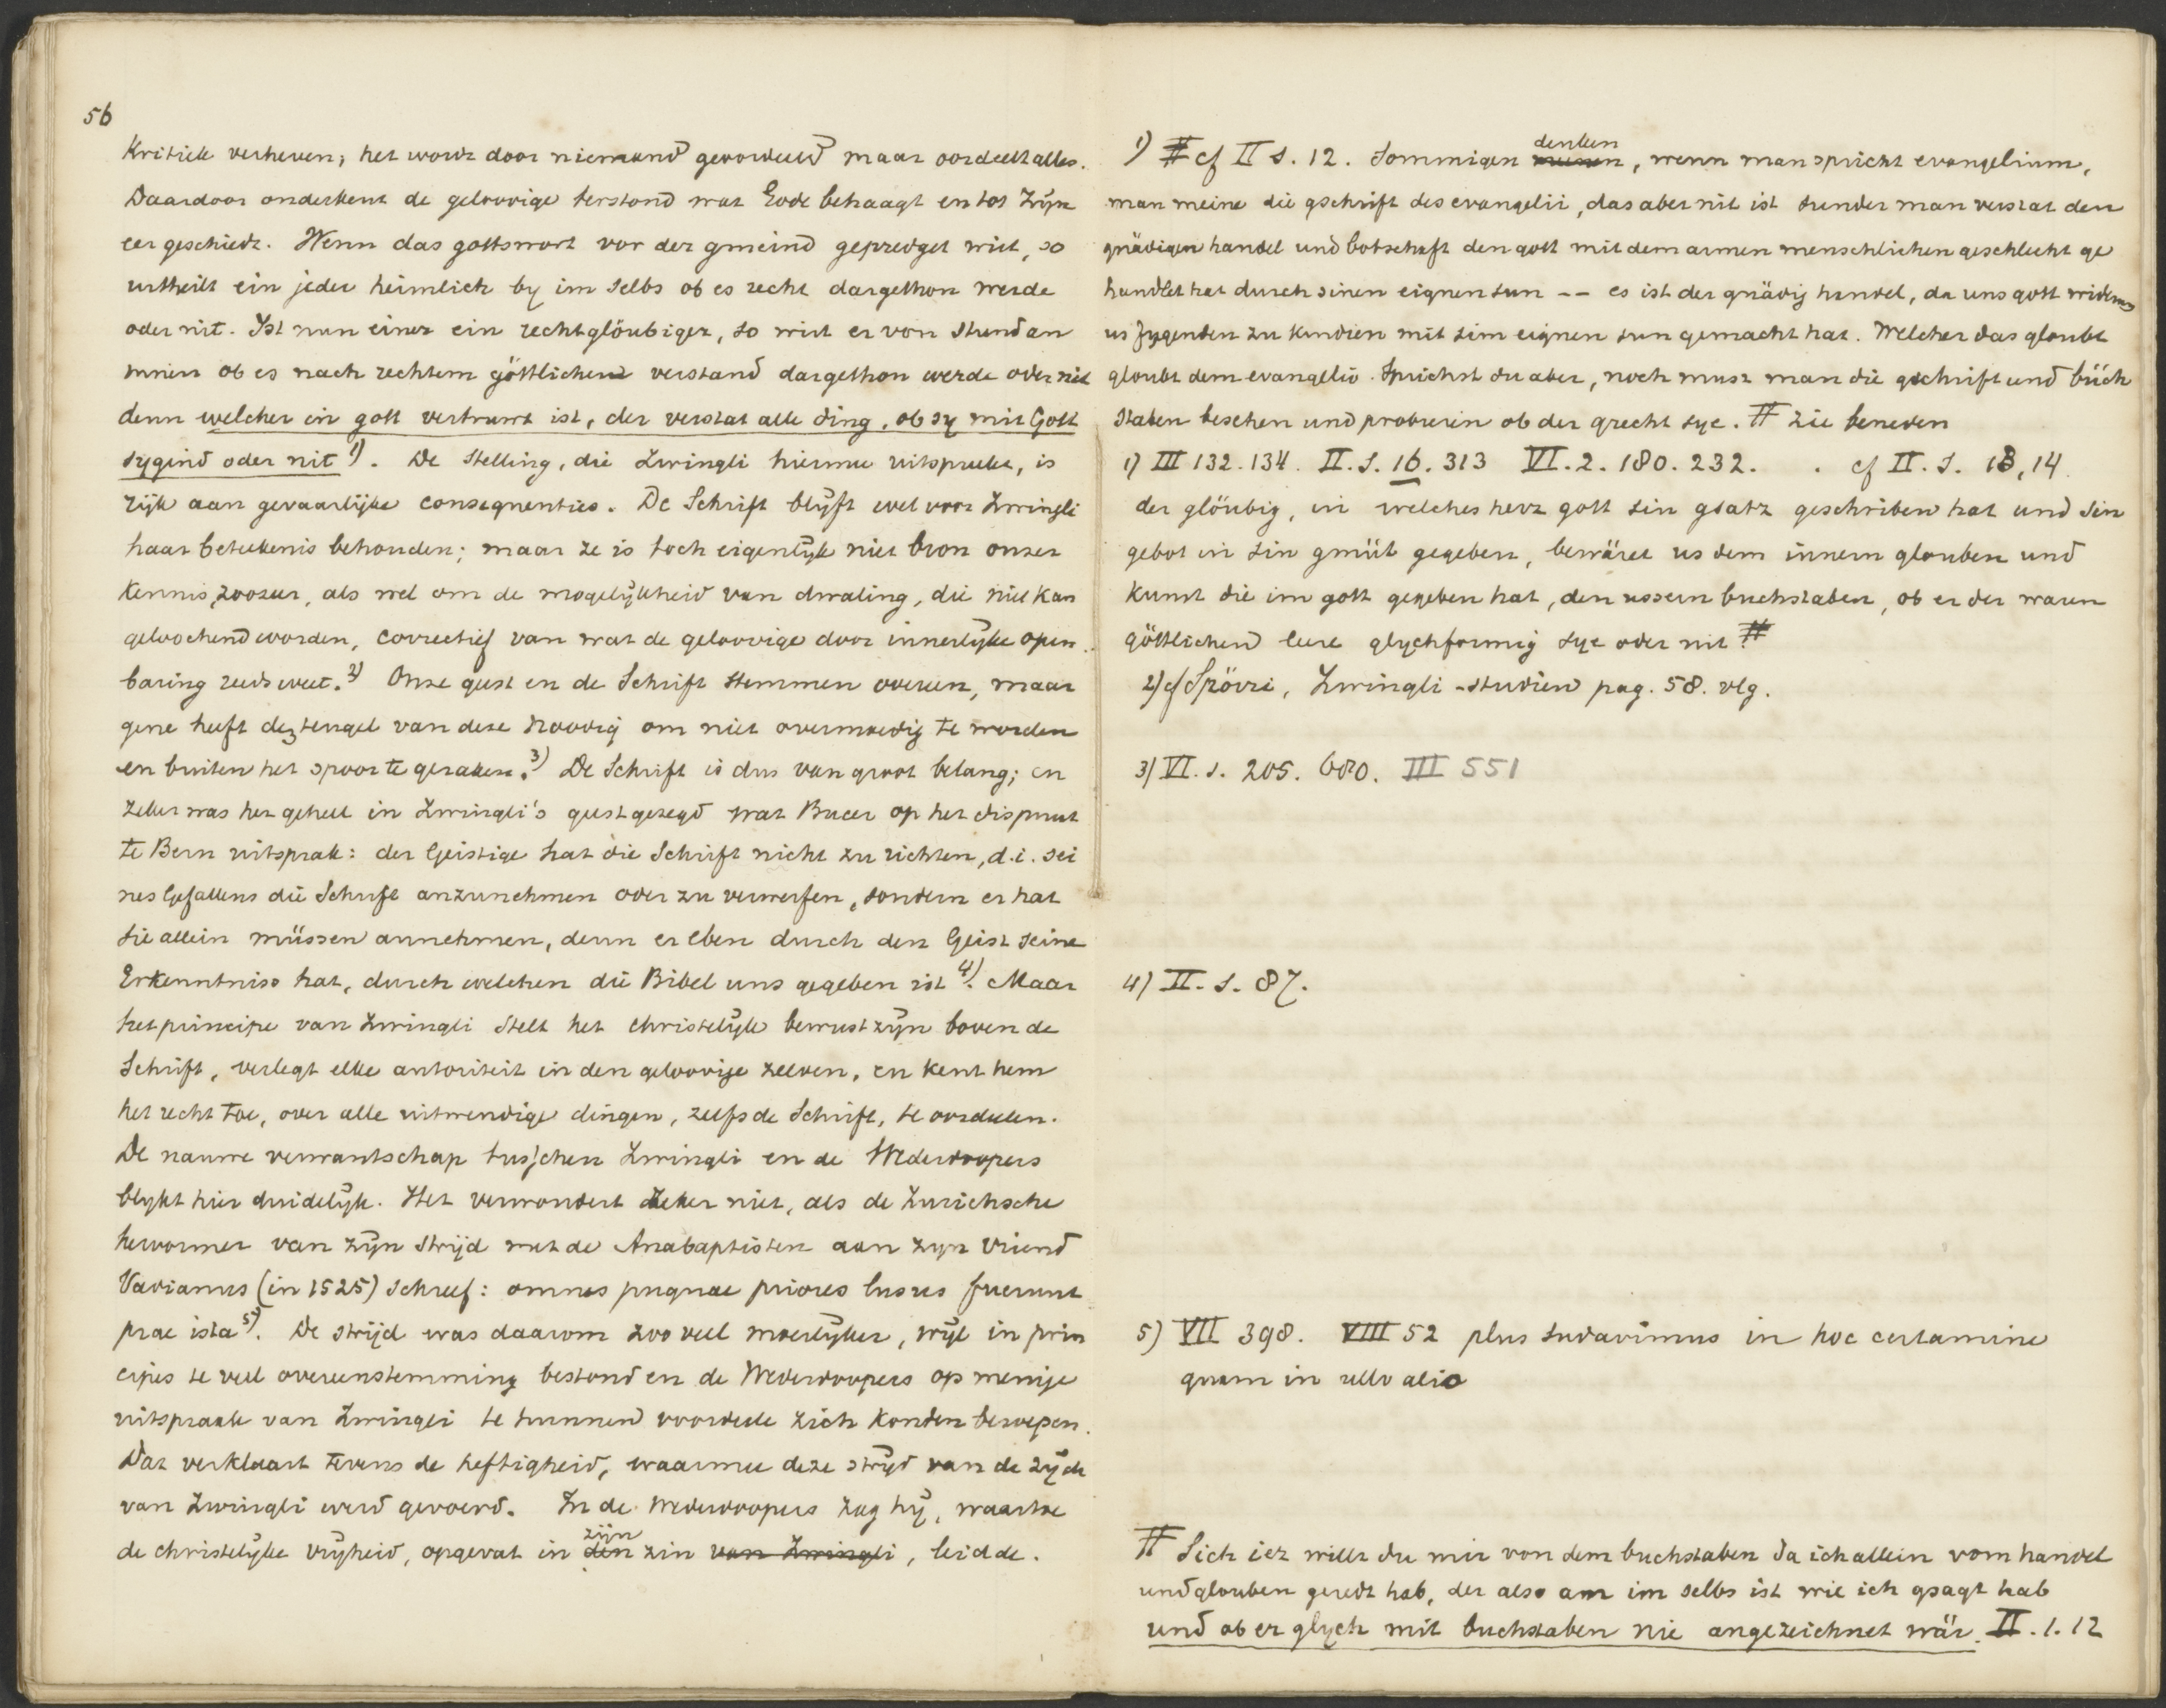 56
Kritiek verheven; het wordt door niemand geoordeeld maar oordeelt alles.
Daardoor onderkent de geloovige terstond wat Gode behaagt en tot Zijn
eer geschiedt. Wenn das gottswort vor der gmeind gepredget wirt, so
urtheilt ein jeder heimlich by im selbs ob es recht dargethon werde
oder nit. Ist nun einer ein rechtglöubiger, so wirt er von stund an
innen ob es nach rechtem göttlichend verstand dargethon werde oder nit
denn welcher in gott vertruwt ist, der verstat alle ding, ob sy mit Gott
sygind oder nit 1). De stelling, die Zwingli hiermee uitspreekt, is
rijk aan gevaarlijke consequenties. De Schrift blijft wel voor Zwingli
haar beteekenis behouden; maar ze is toch eigenlijk niet bron onzer
kennis, zoozeer, als wel om de mogelijkheid van dwaling, die niet kan
geloochend worden, correctief van wat de geloovige door innerlijke open
baring reeds weet. 2) Onze geest en de Schrift stemmen overeen, maar
gene heeft de tengel van deze noodig om niet overmoedig te worden
en buiten het spoor te geraken. 3) De Schrift is dus van groot belang; en
zeker was het geheel in Zwingli's geest gezegd wat Bucer op het dispuut
te Bern uitsprak: der Geistige hat die Schrift nicht zu richten, d.i. sei
nes Gefallens die Schrift anzunehmen oder zu verwerfen, sondern er hat
sie allein müssen annehmen, denn er eben durch den Geist seine
Erkenntniss hat, durch welchen die Bibel uns gegeben ist 4). Maar
het principe van Zwingli stelt het christelijk bewustzijn boven de
Schrift, verlegt elke autoriteit in den geloovige zelven, en kent hem
het recht toe, over alle uitwendige dingen, zelfs de Schrift, te oordeelen.
De nauwe verwantschap tusschen Zwingli en de Wederdoopers
blykt hier duidelijk. Het verwondert zeker niet, als de Zurichsche
hervormer van zijn strijd met de Anabaptisten aan zyn vriend
Vadianus (in 1525) schreef: omnes pugnae priores lusus fuerunt
prae ista 5). De strijd was daarom zooveel moeilijker, wijl in prin
cipes te veel overeenstemming bestond en de Wederdoopers op menige
uitspraak van Zwingli te hunnen voordeele zich konden beroepen.
Dat verklaart tevens de heftigheid, waarmee deze strijd van de zijde
van Zwingli werd gevoerd. In de Wederdoopers zag hij, waartoe
de christelijke vrijheid, opgevat in den zijn zin van Zwingli, leidde.
1) # cf II S. 12. Sommigen meinen denken, wenn man spricht evangelium,
man meine die gschrift des evangelii, das aber nit ist sunder man verstat den
gnädigen handel und botschaft den gott mit dem armen menschlichen geschlecht ge
handlet hat durch sinen eignen sun -- es ist der gnädig handel, da uns gott widerum
us fygenden zu kindren mit sim eignen sun gemacht hat. Welcher das gloubt
gloubt dem evangelio. Sprichst du aber, noch musz man die gschrift und büch
staben besehen und probieren ob der grecht sye. # zie beneden
1) III 132. 134. II. S. 16. 313 VI. 2. 180. 232. . cf II. S. 13, 14.
der glöubig, in welches herz gott sin gsatz geschriben hat und sin
gebot in sin gmüt gegeben, bewäret us dem innern glouben und
kunst die im gott gegeben hat, den ussern buchstaben, ob er der waren
göttlichen leere glychformig sye oder nit #
2) cf Spörri, Zwingli-studien pag. 58. vlg.
3) VI. 1. 205. 680. III 551
4) II. S. 87.
5) VII 398. VIII 52 plus sudavimus in hoc certamine
quam in ullo alio
# Sich iez willt du mir von dem buchstaben da ich allein vom handel
und glouben geredt hab, der also am im selbs ist wie ich gsagt hab
und ob er glych mit buchstaben nie angezeichnet wär. II. 1. 12